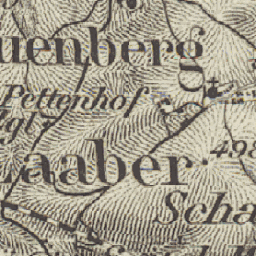 uenberg
Pettenhof
aaber
498
Scha